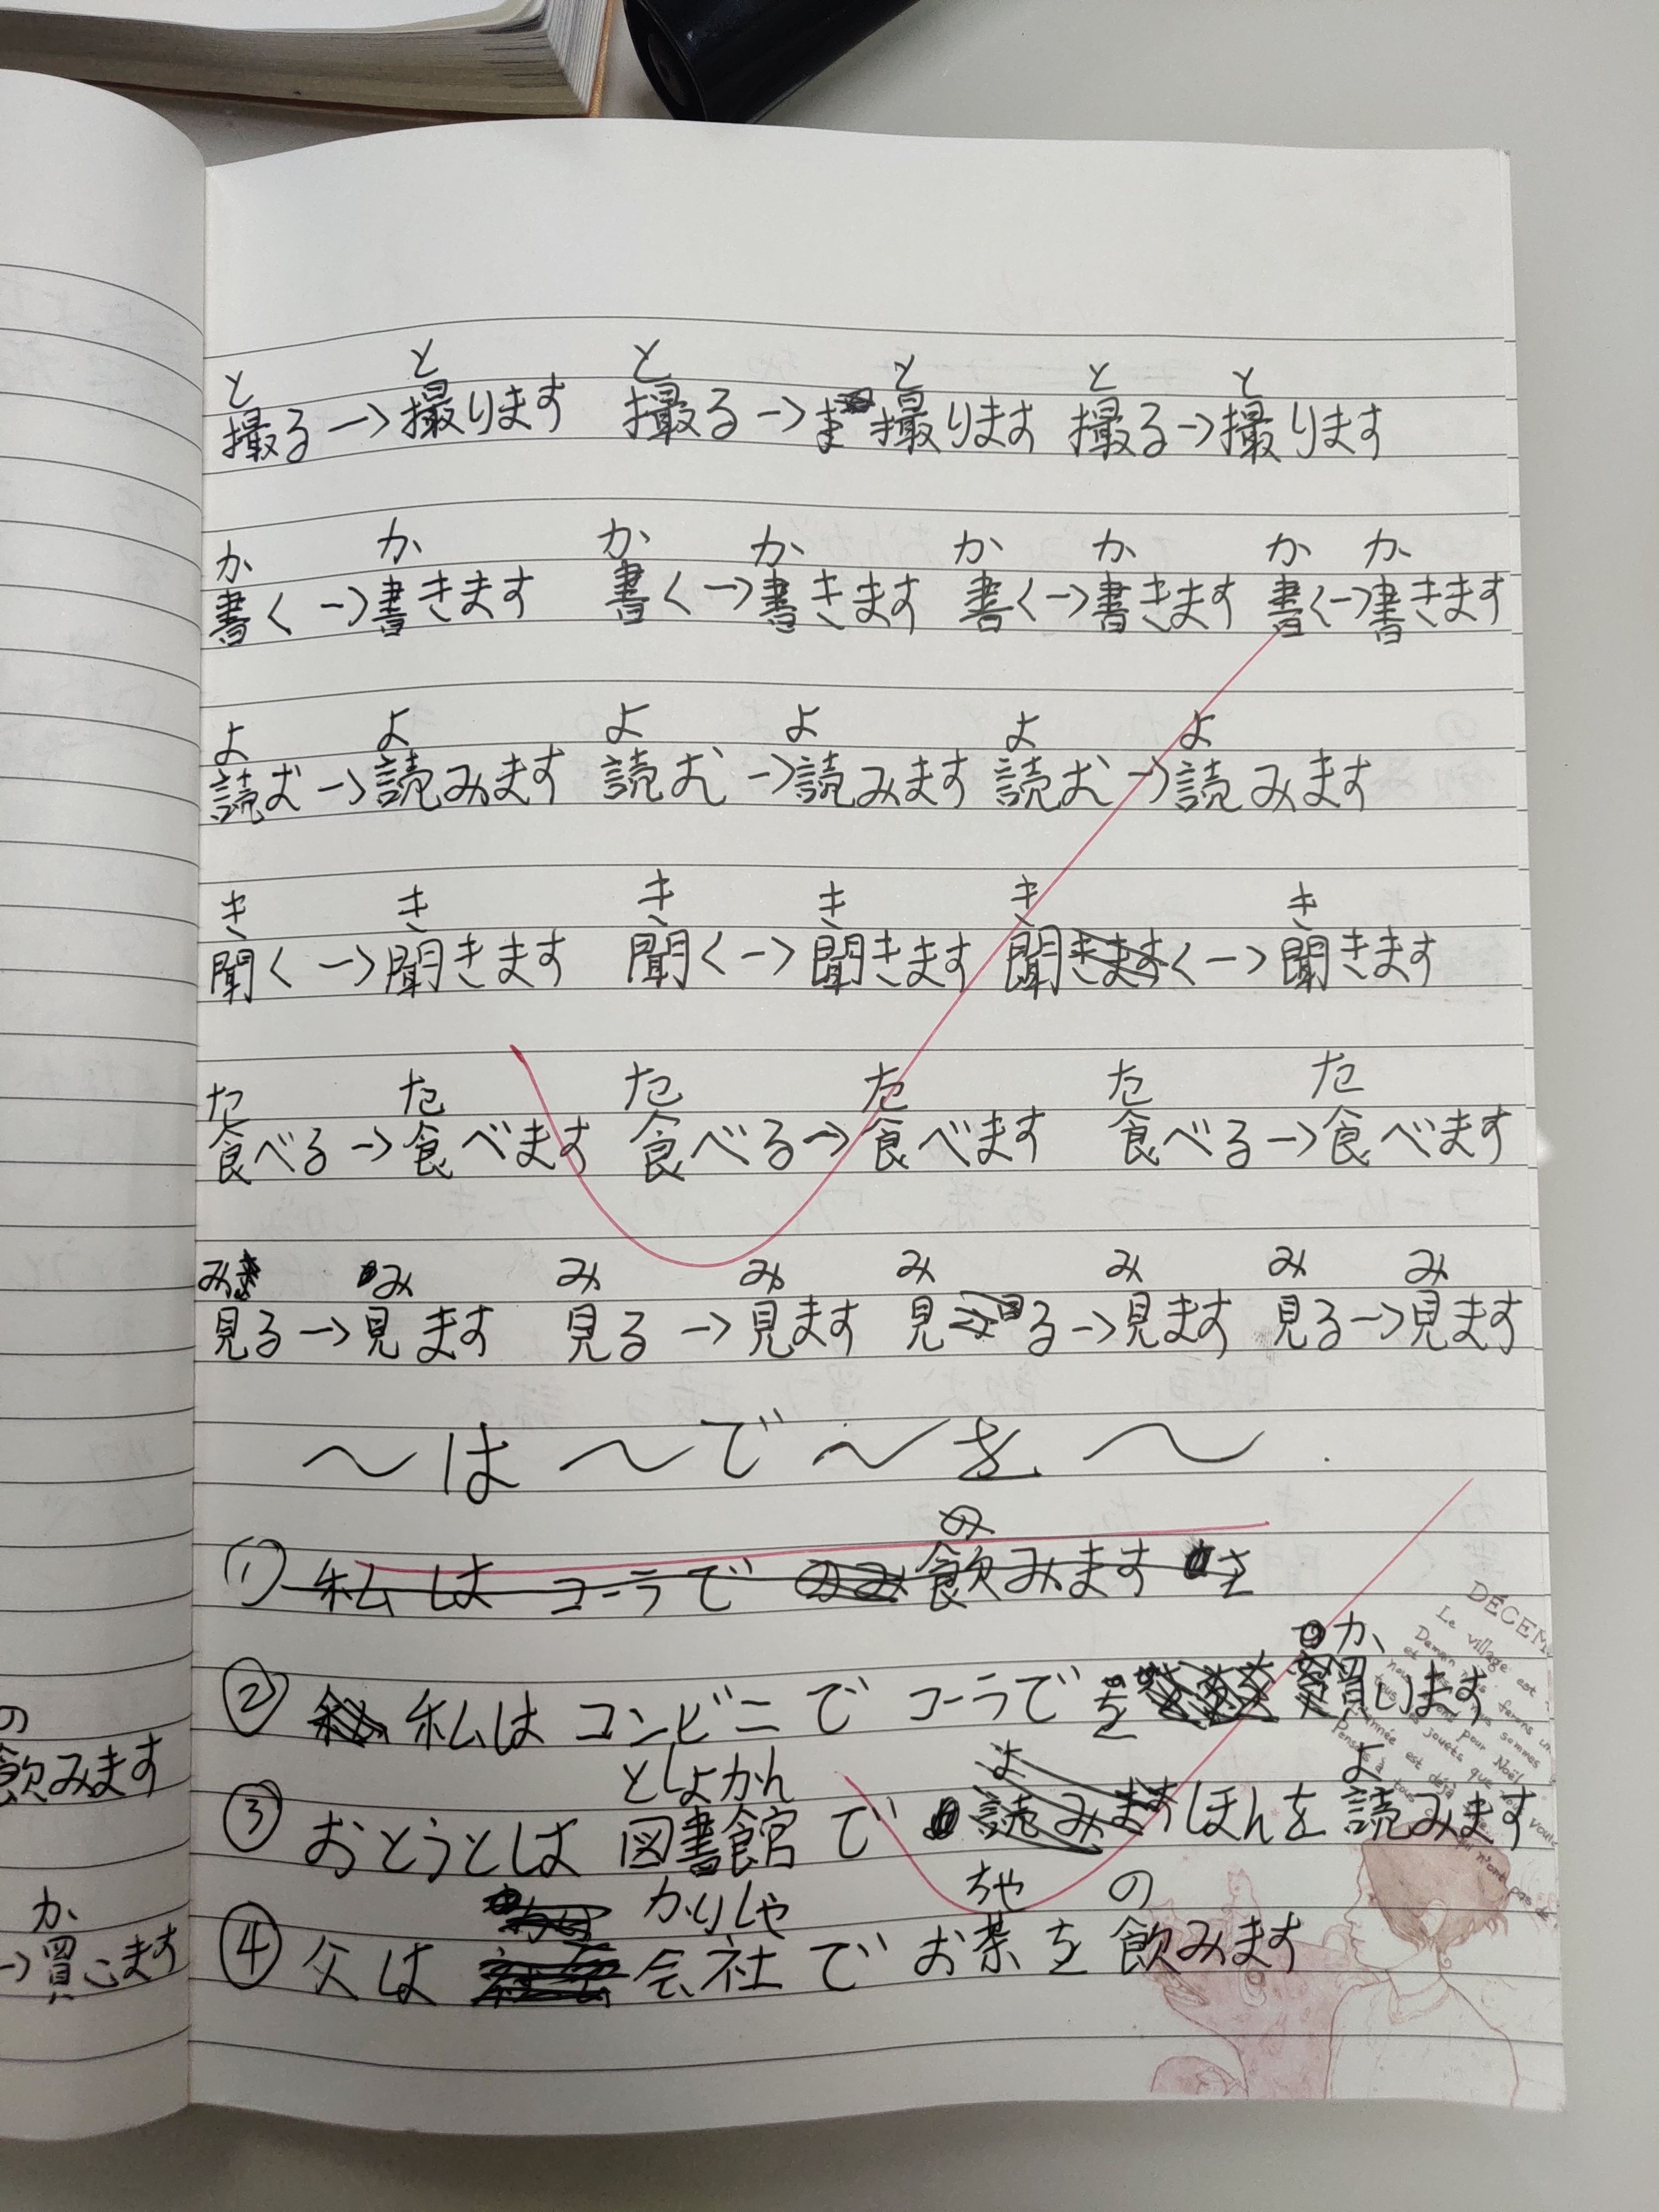 と と と と と と
撮る→撮ります 撮る→撮ります 撮る→撮ります
か か か か か か か か
書く→書きます 書く→書きます 書く→書きます 書く→書きます
よ よ よ よ よ よ
読む→読みます 読む→読みます 読む→読みます
き き き き き き
聞く→聞きます 聞く→聞きます 聞く→聞きます
た た た た た た
食べる→食べます 食べる→食べます 食べる→食べます
み み み み み み み み
見る→見ます 見る→見ます 見る→見ます 見る→見ます
〜は〜で〜を〜
の
① 私は コーラで 飲みます を
か
② 私は コンビニで コーラで を 買います
としょかん よ よ
③ おとうとは 図書館で 読みます ほんを 読みます
かいしゃ ちゃ の
④ 父は 会社で お茶を 飲みます
の
飲みます
か
→買います
DÉCEM
Le village est